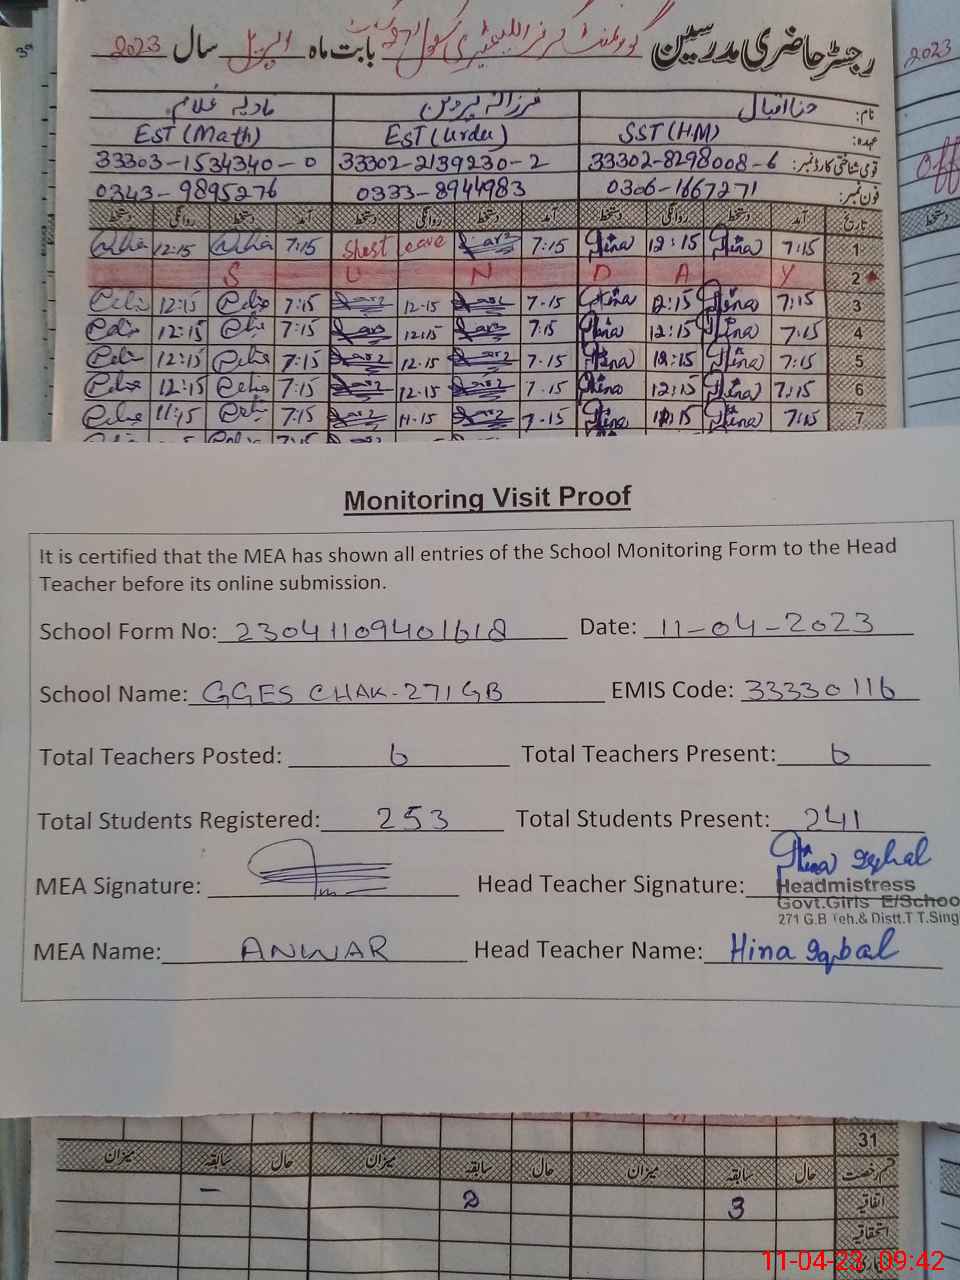 رجسٹر حاضری مدرسین گورنمنٹ گرلز ایلیمنٹری سکول 271 بابت ماہ اپریل سال 2023
2023
نام: حنا اقبال فرزانہ پروین
عہدہ: SST (HM) EST (Urdu) EST (Math)
قومی شناختی کارڈ نمبر: 33302-8298008-6 33302-2139230-2 33303-1534340-0
فون نمبر: 0306-1667271 0333-8944983 0343-9895276
تاریخ آمد دستخط روانگی دستخط آمد دستخط روانگی دستخط آمد دستخط روانگی دستخط
1 7:15 Hina 12:15 Hina 7:15 leave 7:15 12:15
2 S U N D A Y
3 7:15 Hina 12:15 Hina 7-15 12-15 7:15 12:15
4 7:15 Hina 12:15 Hina 7:15 12:15 7:15 12:15
5 7:15 Hina 12:15 Hina 7-15 12-15 7:15 12:15
6 7:15 Hina 12:15 Hina 7-15 12-15 7:15 12:15
7 7:15 Hina 11:15 Hina 7-15 11-15 7:15 11:15
Monitoring Visit Proof
It is certified that the MEA has shown all entries of the School Monitoring Form to the Head
Teacher before its online submission.
School Form No: 23041109401618 Date: 11-04-2023
School Name: GGES CHAK-271GB EMIS Code: 33330116
Total Teachers Posted: 6 Total Teachers Present: 6
Total Students Registered: 253 Total Students Present: 241
MEA Signature: Head Teacher Signature: Hina Iqbal
Headmistress
Govt.Girls E/School
271 G.B Teh.& Distt.T.T.Sing
MEA Name: ANWAR Head Teacher Name: Hina Iqbal
31
قسم رخصت حال سابقہ میزان حال سابقہ میزان حال سابقہ میزان
اتفاقیہ 3 2 –
استحقاقیہ
11-04-23 09:42